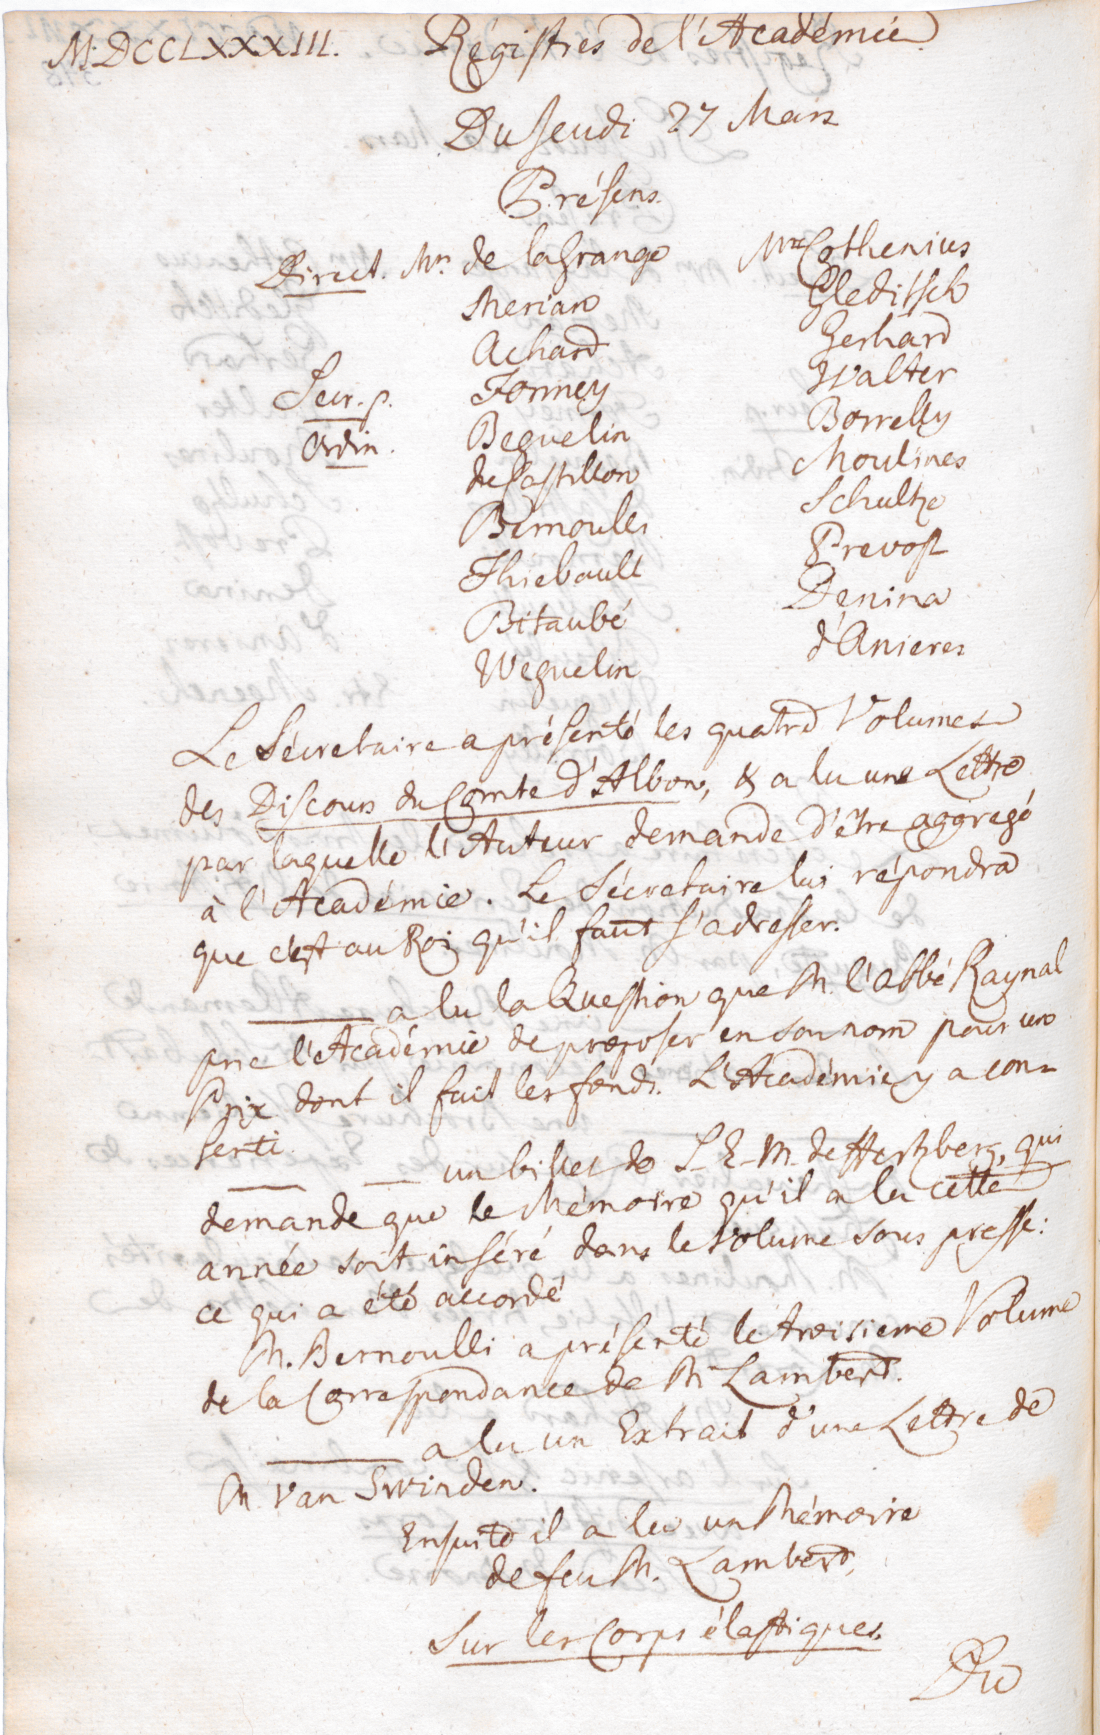 M.DCCLXXXIII. Régistres de l'Académie.
Du Jeudi 27 Mars
Présens.
Direct. Mrs. de la Grange Mrs Cothenius
Merian Gleditsch
Achard Gerhard
Secr. p. Formey Walter
Ordin. Beguelin Borrelly
de Castillon Moulines
Bernoulli Schultze
Thiebault Prevost
Bitaubé Denina
Weguelin d'Anieres
Le Sécretaire a présenté les quatre Volumes
des Discours du Comte d'Albon, & a lu une Lettre
par laquelle l'Auteur demande d'être aggregé
à l'Académie. Le Sécretaire lui répondra
que c'est au Roi qu'il faut s'adresser.
——— a lu la Question que M. l'abbé Raynal
prie l'Académie de proposer en son nom pour un
Prix dont il fait les fonds. L'Académie y a con-
senti.
—— — un billet de S. E. M. de Hertzberg, qui
demande que le Mémoire qu'il a lu cette
année soit inséré dans le Volume sous presse:
ce qui a été accordé
M. Bernoulli a présenté le troisieme Volume
de la Correspondance de M Lambert.
——— a lu un Extrait d'une Lettre de
M. van Swinden.
Ensuite il a lu un Mémoire
de feu M. Lambert,
Sur les Corps élastiques.
Du